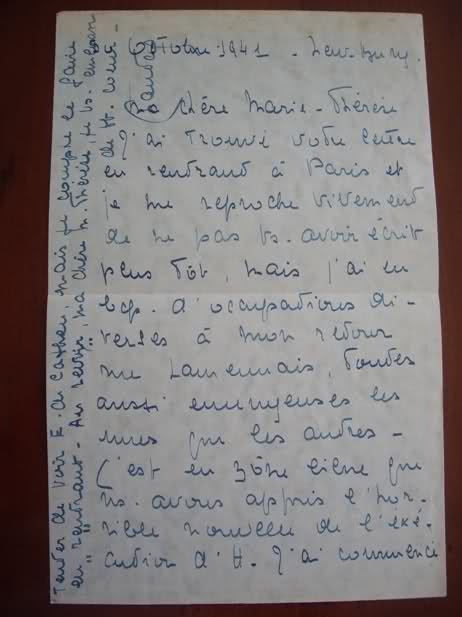 Octobre 1941 -
Ma chère Marie-Thérèse
J'ai trouvé votre lettre
en rentrant à Paris et
je me reproche vivement
de ne pas vs. avoir écrit
plus tôt, mais j'ai eu
bcp. d'occupations di-
verses à mon retour
rue Lamennais, toutes
aussi ennuyeuses les
unes que les autres -
C'est en zône libre que
ns. avons appris l'hor-
rible nouvelle de l'exé-
cution d'H. J'ai commencé
de voir E. de mais je compte le faire
en rentrant - Au revoir, ma chère M. Thérèse, je vs. embrasse
de tt. coeur -